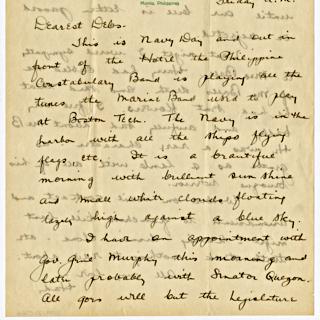 Manila, Philippines
Dearest Debs.
This is Navy Day and out in
front of the Hotel the Philippine
Constabulary Band is playing all the
tunes the Marine Band used to play
at Boston Tech. The Navy is in the
harbor with all the ships flying
flags etc. It is a beautiful
morning with brilliant sunshine
and small white clouds floating
high against a blue sky.
I have an appointment with
Gov. Murphy this morning and
later probably with Senator Quezon.
All goes well but the Legislature